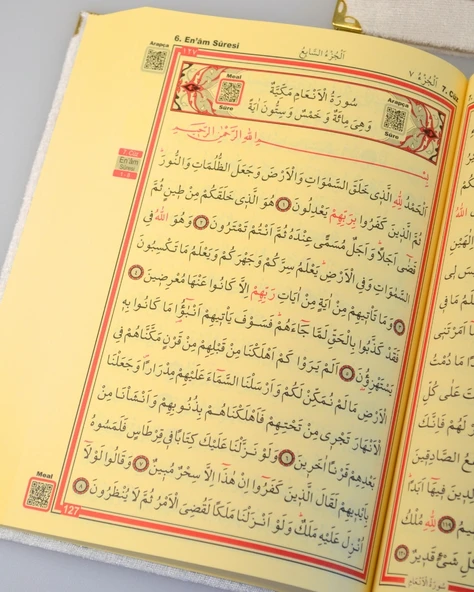 6. En'âm Sûresi
اَلْجُزْءُ السَّابِعُ
اَلْجُزْءُ ٧
7. Cüz
١٢٧
Arapça
Meal
سُورَةُ الْاَنْعَامِ مَكِّيَّةٌ
وَهِىَ مِائَةٌ وَ خَمْسٌ وَ سِتُّونَ اٰيَةً
Sûre
Arapça
Sûre
بِسْمِ اللّٰهِ الرَّحْمٰنِ الرَّحِيمِ
7. Cüz
En'âm
Sûresi
اَلْحَمْدُ لِلّٰهِ الَّذِى خَلَقَ السَّمٰوَاتِ وَالْاَرْضَ وَجَعَلَ الظُّلُمَاتِ وَالنُّورَ
ثُمَّ الَّذِينَ كَفَرُوا بِرَبِّهِمْ يَعْدِلُونَ ١ هُوَ الَّذِى خَلَقَكُمْ مِنْ طِينٍ ثُمَّ
قَضٰٓى اَجَلًا وَ اَجَلٌ مُسَمًّى عِنْدَهُ ثُمَّ اَنْتُمْ تَمْتَرُونَ ٢ وَهُوَ اللّٰهُ فِى
السَّمٰوَاتِ وَفِى الْاَرْضِ يَعْلَمُ سِرَّكُمْ وَجَهْرَكُمْ وَيَعْلَمُ مَا تَكْسِبُونَ
٣ وَمَا تَاْتِيهِمْ مِنْ اٰيَةٍ مِنْ اٰيَاتِ رَبِّهِمْ اِلَّا كَانُوا عَنْهَا مُعْرِضِينَ ٤
فَقَدْ كَذَّبُوا بِالْحَقِّ لَمَّا جَٓاءَهُمْ فَسَوْفَ يَاْتِيهِمْ اَنْبٰٓؤُا مَا كَانُوا بِهِ
يَسْتَهْزِؤُنَ ٥ اَلَمْ يَرَوْا كَمْ اَهْلَكْنَا مِنْ قَبْلِهِمْ مِنْ قَرْنٍ مَكَّنَّاهُمْ فِى
الْاَرْضِ مَا لَمْ نُمَكِّنْ لَكُمْ وَاَرْسَلْنَا السَّمَٓاءَ عَلَيْهِمْ مِدْرَارًا وَجَعَلْنَا
الْاَنْهَارَ تَجْرِى مِنْ تَحْتِهِمْ فَاَهْلَكْنَاهُمْ بِذُنُوبِهِمْ وَ اَنْشَاْنَا مِنْ
بَعْدِهِمْ قَرْنًا اٰخَرِينَ ٦ وَلَوْ نَزَّلْنَا عَلَيْكَ كِتَابًا فِى قِرْطَاسٍ فَلَمَسُوهُ
بِاَيْدِيهِمْ لَقَالَ الَّذِينَ كَفَرُٓوا اِنْ هٰذَٓا اِلَّا سِحْرٌ مُبِينٌ ٧ وَقَالُوا لَوْلَٓا
اُنْزِلَ عَلَيْهِ مَلَكٌ وَلَوْ اَنْزَلْنَا مَلَكًا لَقُضِىَ الْاَمْرُ ثُمَّ لَا يُنْظَرُونَ ٨
Meal
127